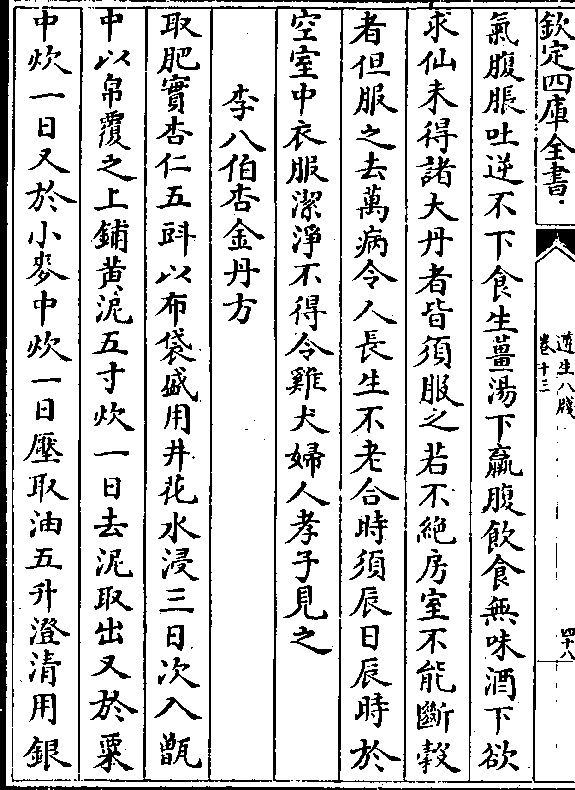 欽定四庫全書
遵生八牋
卷十三
四十八
氣腹脹吐逆不下食生薑湯下羸腹飲食無味酒下欲
求仙未得諸大丹者皆須服之若不絶房室不能斷穀
者但服之去萬病令人長生不老合時須辰日辰時於
空室中衣服潔淨不得令雞犬婦人孝子見之
李八伯杏金丹方
取肥實杏仁五㪷以布袋盛用井花水浸三日次入甑
中以帛覆之上鋪黄泥五寸炊一日去泥取出又於粟
中炊一日又於小麥中炊一日壓取油五升澄清用銀